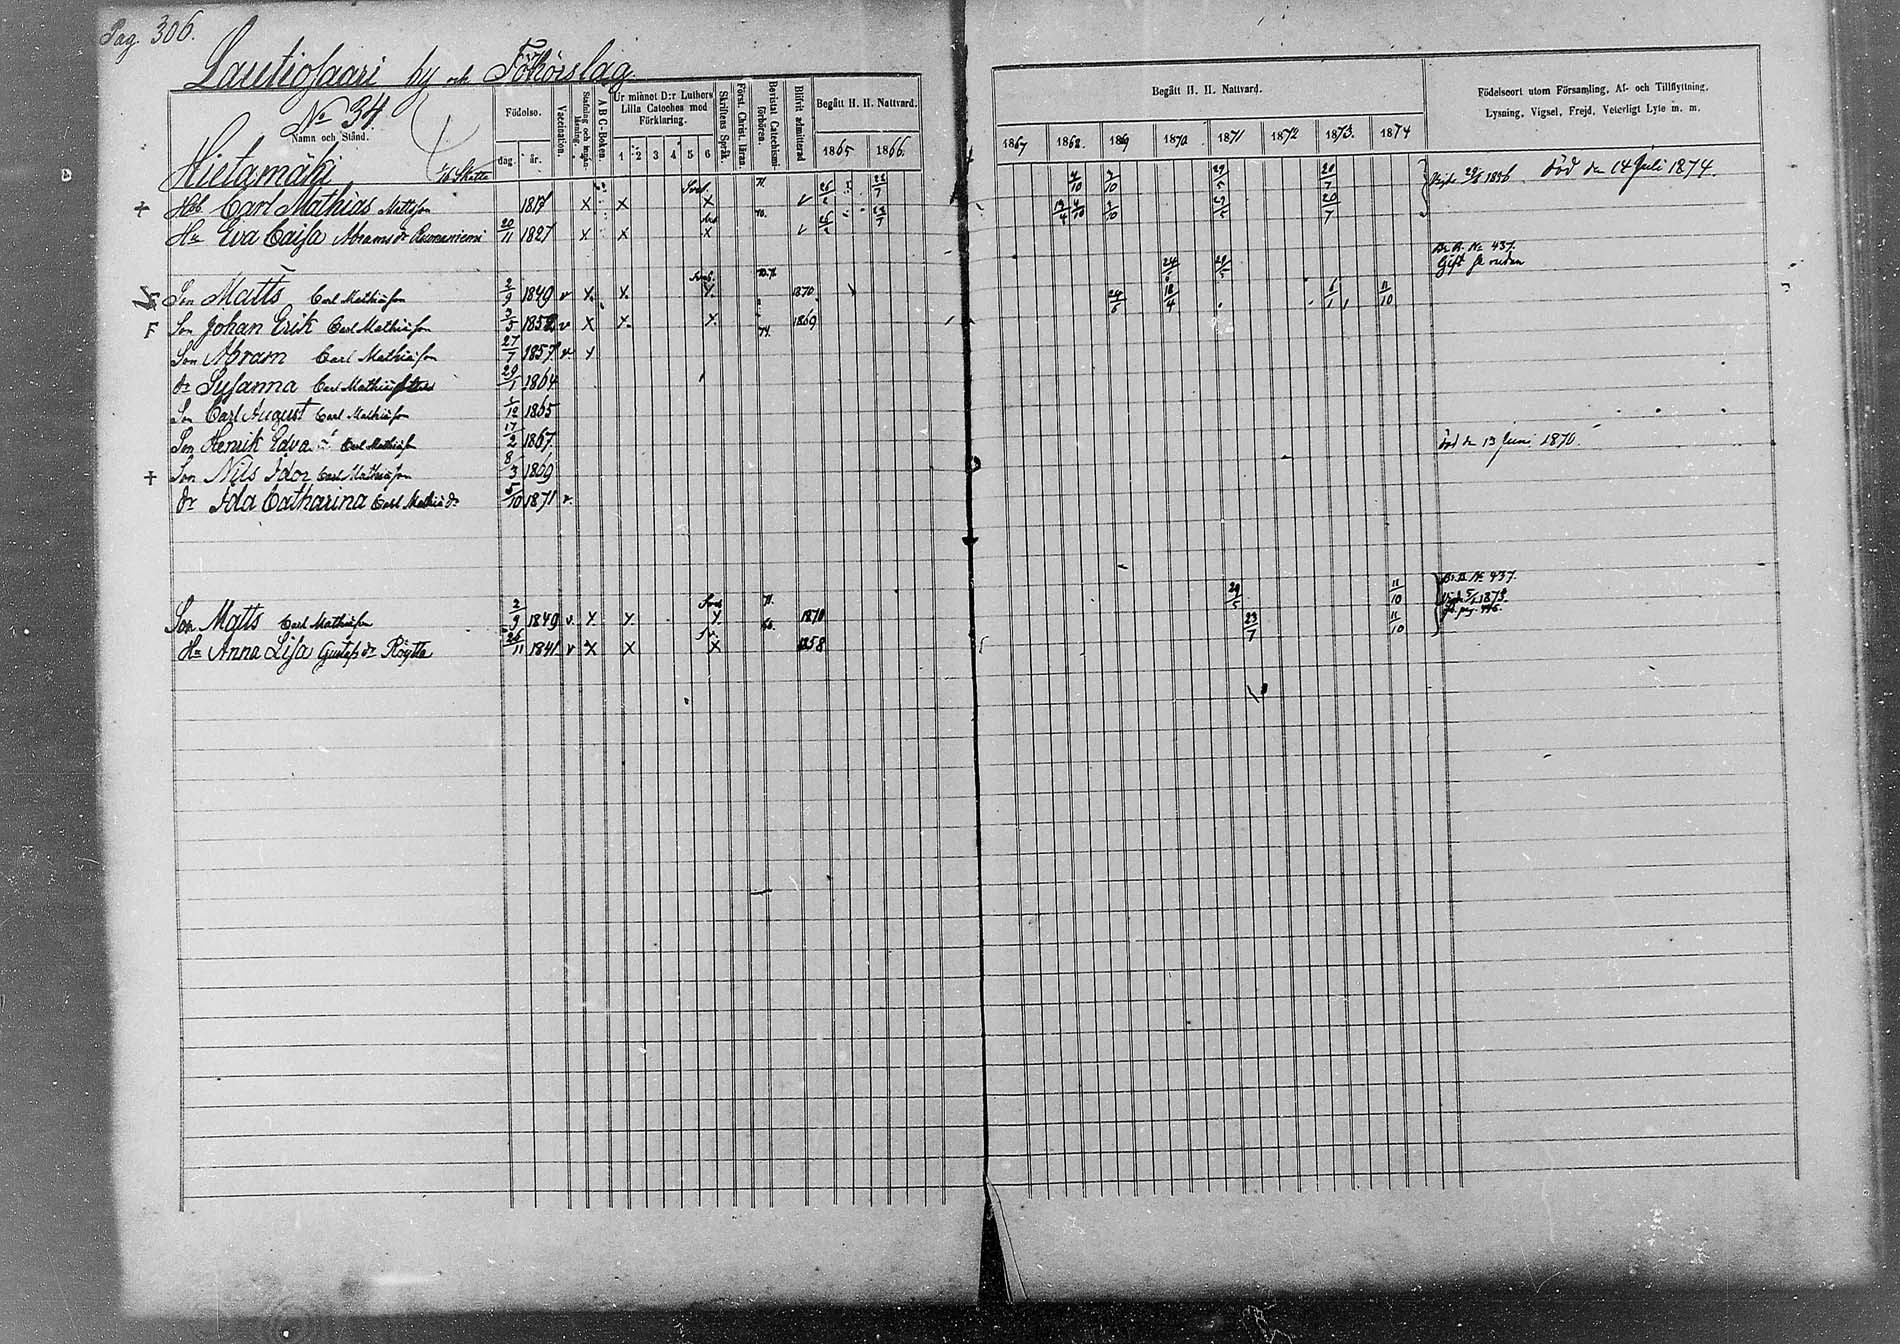 Pag. 306.
Lautiosaari by och Förhörslag.
No 34
Namn och Stånd.
Hietamäki
Skatte
Födelse.
dag. år.
Vaccination.
Stafning och innanläsning.
A B C-Boken.
Ur minnet D:r Luthers Lilla Cateches med Förklaring.
1 2 3 4 5 6
Skriftens Språk.
Först. Christ. läran.
Bevistat Catechismiförhören.
Blifvit admitterad
Begått H. H. Nattvard.
1865 1866.
Begått H. H. Nattvard.
1867 1868 1869 1870 1871 1872 1873. 1874
Födelseort utom Församling, Af- och Tillflyttning,
Lysning, Vigsel, Frejd, Veterligt Lyte m. m.
+ Hb Carl Mathias Mattsson 1817 X X X död den 14 Juli 1874.
Hu Eva Caisa Abrams dr 20/11 1827 X X X
Br. B. No 437.
Gift se nedan
Son Matts Carl Mathiasson 2/9 1849 v X X X 1870
F Son Johan Erik Carl Mathiasson 3/5 1852 v X X X 1869
Son Abram Carl Mathiasson 27/7 1857 v X
dr Susanna Carl 29/1 1864
Son Carl August Carl Mathiasson 1/12 1865
Son Henrik Edvard Carl Mathiasson 17/2 1867
+ Son Nils Idor Carl Mathiasson 8/3 1869 död den 13 Juni 1870.
dr Ida Catharina Carl Mathias dr 5/10 1871 v.
Br. B. No 437.
Son Matts Carl Mathiasson 2/9 1849 v. X X X 1870
Hu Anna Lisa Gustafs dr Röytta 26/11 1841 v X X X 1858